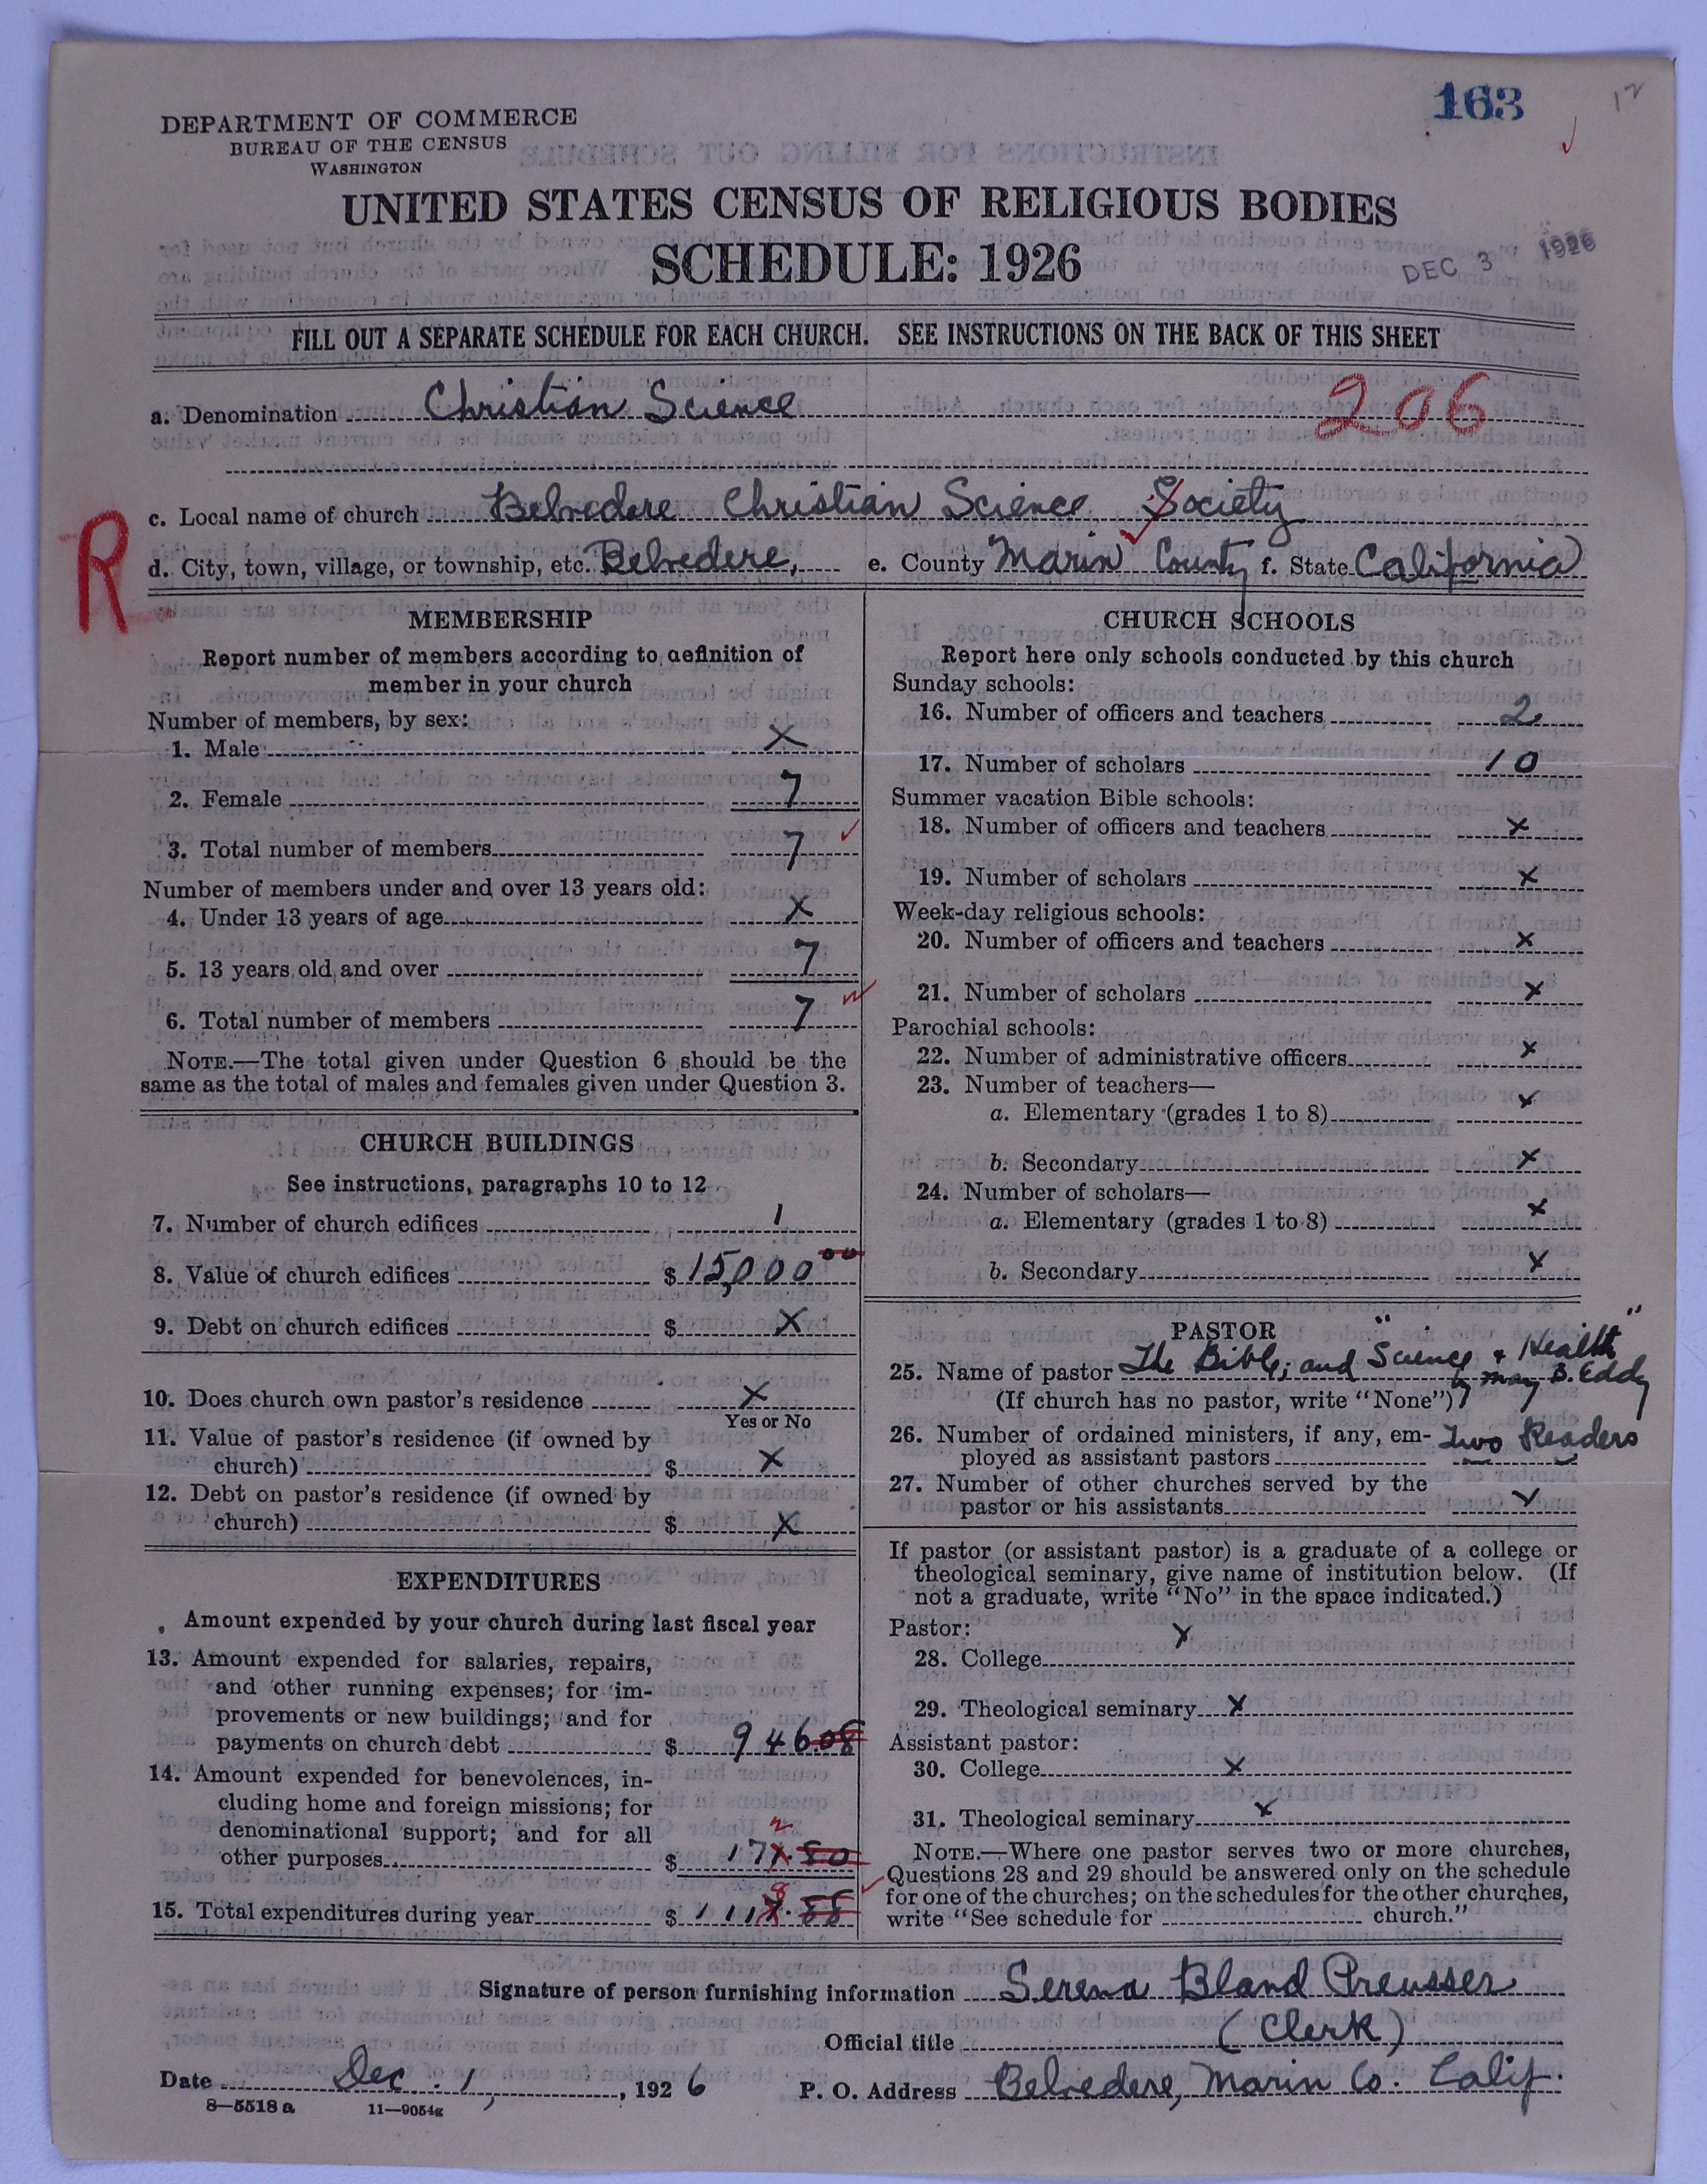 163
12
DEPARTMENT OF COMMERCE
BUREAU OF THE CENSUS
WASHINGTON
UNITED STATES CENSUS OF RELIGIOUS BODIES
SCHEDULE: 1926
DEC 3 1926
FILL OUT A SEPARATE SCHEDULE FOR EACH CHURCH. SEE INSTRUCTIONS ON THE BACK OF THIS SHEET
a. Denomination Christian Science
206
c. Local name of church Belvedere Christian Science Society
R
d. City, town, village, or township, etc. Belvedere, e. County Marin County f. State California
MEMBERSHIP
Report number of members according to definition of
member in your church
Number of members, by sex:
1. Male X
2. Female 7
3. Total number of members 7
Number of members under and over 13 years old:
4. Under 13 years of age X
5. 13 years old and over 7
6. Total number of members 7
NOTE.—The total given under Question 6 should be the
same as the total of males and females given under Question 3.
CHURCH BUILDINGS
See instructions, paragraphs 10 to 12
7. Number of church edifices 1
8. Value of church edifices $ 15,000 00
9. Debt on church edifices $ X
10. Does church own pastor's residence X
Yes or No
11. Value of pastor's residence (if owned by
church) $ X
12. Debt on pastor's residence (if owned by
church) $ X
EXPENDITURES
Amount expended by your church during last fiscal year
13. Amount expended for salaries, repairs,
and other running expenses; for im-
provements or new buildings; and for
payments on church debt $ 946.08
14. Amount expended for benevolences, in-
cluding home and foreign missions; for
denominational support; and for all
2
other purposes $ 171.80
8
15. Total expenditures during year $ 1117.88
CHURCH SCHOOLS
Report here only schools conducted by this church
Sunday schools:
16. Number of officers and teachers 2
17. Number of scholars 10
Summer vacation Bible schools:
18. Number of officers and teachers X
19. Number of scholars X
Week-day religious schools:
20. Number of officers and teachers X
21. Number of scholars X
Parochial schools:
22. Number of administrative officers X
23. Number of teachers—
a. Elementary (grades 1 to 8) X
b. Secondary X
24. Number of scholars—
a. Elementary (grades 1 to 8) X
b. Secondary X
PASTOR
25. Name of pastor The Bible; and "Science & Health"
by Mary B. Eddy
(If church has no pastor, write "None")
26. Number of ordained ministers, if any, em- Two Readers
ployed as assistant pastors
27. Number of other churches served by the
pastor or his assistants X
If pastor (or assistant pastor) is a graduate of a college or
theological seminary, give name of institution below. (If
not a graduate, write "No" in the space indicated.)
Pastor:
28. College X
29. Theological seminary X
Assistant pastor:
30. College X
31. Theological seminary X
NOTE.—Where one pastor serves two or more churches,
Questions 28 and 29 should be answered only on the schedule
for one of the churches; on the schedules for the other churches,
write "See schedule for church."
Signature of person furnishing information Serena Bland Preusser
Official title (Clerk)
Date Dec. 1, 1926 P. O. Address Belvedere, Marin Co. Calif.
8—5518 a 11—9054g